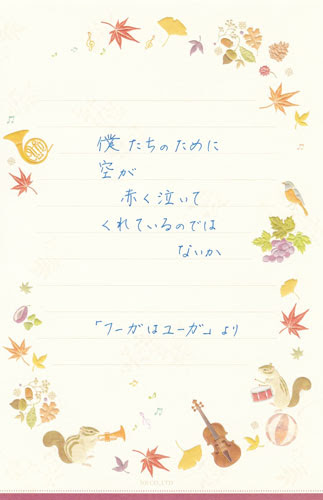 僕たちのために
空が
赤く泣いて
くれているのでは
ないか
「フーガはユーガ」より